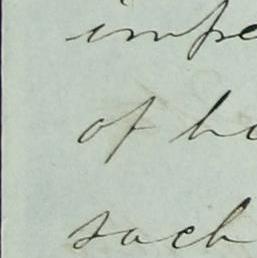 impe
of h
such